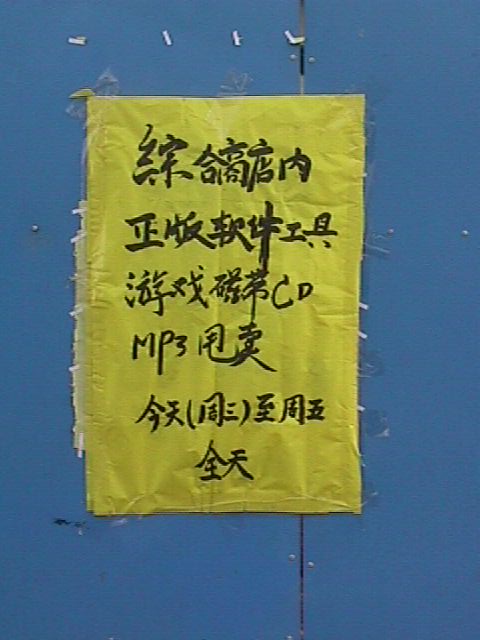 综合商店内
正版软件工具
游戏磁带CD
MP3甩卖
今天(周三)至周五
全天